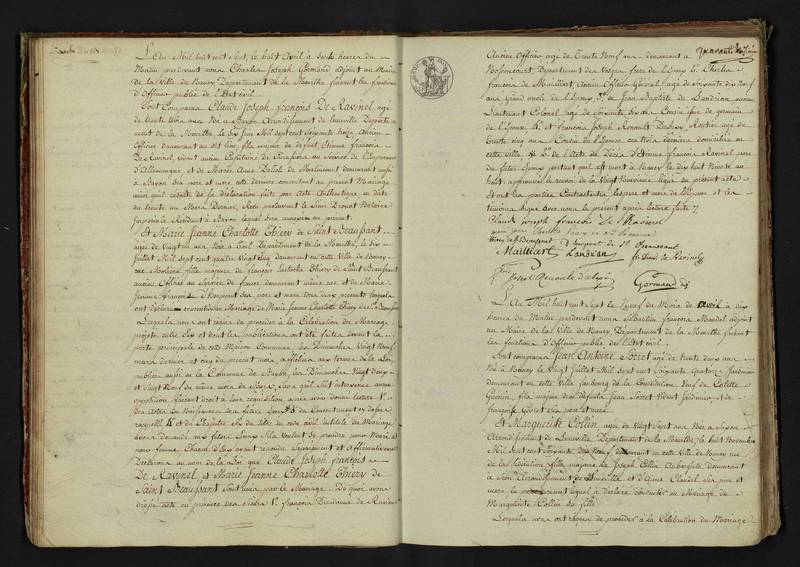 L'An Mil huit cent Sept, le huit Avril à heures du
Matin pardevant nous Charles Joseph Gormand adjoint au Maire
de la Ville de Nancy Département de la Meurthe faisant les fonctions
d'Officier public de l'Etat civil
Sont Comparus Claude Joseph françois De Ravinel agé
de trente trois ans Né à Bayon Arrondissement de Lunéville Départe
ment de la Meurthe, le Six Juin Mil Sept cent Soixante treize ancien
Officier demeurant au dit lieu, fils majeur de défunt Etienne françois
De Ravinel vivant ancien Capitaine de au Service de l'Empereur
d'Allemagne et de Marie Anne de Malincourt demeurant aussi
à Bayon Ses pere et mere cette derniere consentant au présent Mariage
ainsi qu'il resulte de la déclaration faite par Acte Authentique en date
du trente un Mars Dernier, Reçu pardevant le Sieur Notaire
Impérial Résidant à Bayon lequel sera annexé au présent.
Et Marie Jeanne Charlotte Thiéry de Saint Beaussant
agée de vingt un ans Née à Toul Département de la Meurthe, le Six
Juillet Mil Sept cent quatre vingt cinq demeurant en cette Ville de Nancy
rue fille majeure de françois Eustache Thiéry de Saint Beaussant
ancien Officier au Service de france demeurant même rue et de Marie
françoise D'hoquant Ses pere et mere tous deux présents lesquels
ont déclaré consentir au Mariage de Marie Jeanne Charlotte Thiéry de St. Beaussant
Lesquels nous ont requis de procéder à la Célébration du Mariage
projetté entre Eux et dont les publications ont été faites devant la
porte principale de cette Maison Commune les Dimanches Vingt Neuf
mars dernier et cinq du present mois, affichées aux termes de la Loi,
publiées aussi en la Commune de Bayon les Dimanches Vingt deux
et Vingt Neuf du même mois de Mars, sans qu'il soit intervenu aucune
opposition faisant droit à leur réquisition après avoir donné lecture 1°
des Actes de Naissance des futurs Epoux 2° du Consentement cy dessus
rappellé 3° et du Chapitre Six du titre du code civil intitulé du Mariage
avons demandé aux futurs Epoux s'ils veulent se prendre pour Mari et
pour femme Chacun d'Eux ayant répondu séparément et affirmativement
Declarons au nom de la Loi que Claude Joseph françois
De Ravinel et Marie Jeanne Charlotte Thiéry de
Saint Beaussant Sont unis par le Mariage. De quoi avons
dressé acte en présence des Sieurs 1° françois Dieudonné de Ravinel
quarante
Ancien Officier agé de Trente Neuf ans demeurant à
Nossoncourt, Département des Vosges frere de l'Epoux 2. Charles
françois de Maillart Ancien Officier Général, agé de Soixante dix huit
ans grand oncle de l'Epoux, 3. Jean Baptiste de Landrian ancien
Lieutenant Colonel agé de Soixante dix ans Cousin issu de germain
de l'Epoux 4. et françois Joseph Renault Rentier agé de
trente cinq ans Cousin de l'Epouse ces trois derniers domiciliés en
cette Ville & 5. de l'Acte de Décès d'Etienne françois Ravinel, pere
du futur Epoux portant qu'il est mort à Nancy le dix huit Nivose an
huit approuvé le renvoi de la Vingt Neuvieme ligne du present acte
et ont les parties Contractantes les peres et mere de l'Epouse et les
témoins Signé avec nous le présent après lecture faite.
Claude joseph françois De Ravinel
Thiery de St Beaussant D'hoquant de St Beaussant
Maillart Landrian fs Dieudé de Ravinel
Gormand adj
L'An Mil huit cent Sept le Neuf du Mois de Avril à dix
heures du Matin pardevant nous Sébastien françois Mandel adjoint
au Maire de la Ville de Nancy Département de la Meurthe faisant
les fonctions d'Officier public de l'Etat civil.
Sont comparus Jean Antoine Soret agé de trente deux ans
Né à Nancy le Vingt Juillet Mil Sept cent Soixante quatorze Jardinier
demeurant en cette Ville faubourg de la Constitution Veuf de Colette
Guérin, fils majeur de défunt Jean Soret Vivant Jardinier et de
françoise Ses pere et mere
Et Marguerite Collin agée de Vingt Sept ans Née à
Arrondissement de Lunéville Département de la Meurthe, le huit Novembre
Mil Sept cent Soixante dix Neuf, demeurant en cette Ville de Nancy rue
de la fille majeure de Joseph Collin Aubergiste demeurant
à Arrondissement de Lunéville et d'Anne Claudel Ses pere et
mere le présent lequel à déclaré consentir au Mariage de
Marguerite Collin sa fille.
Lesquels nous ont requis de procéder à la Célébration du Mariage